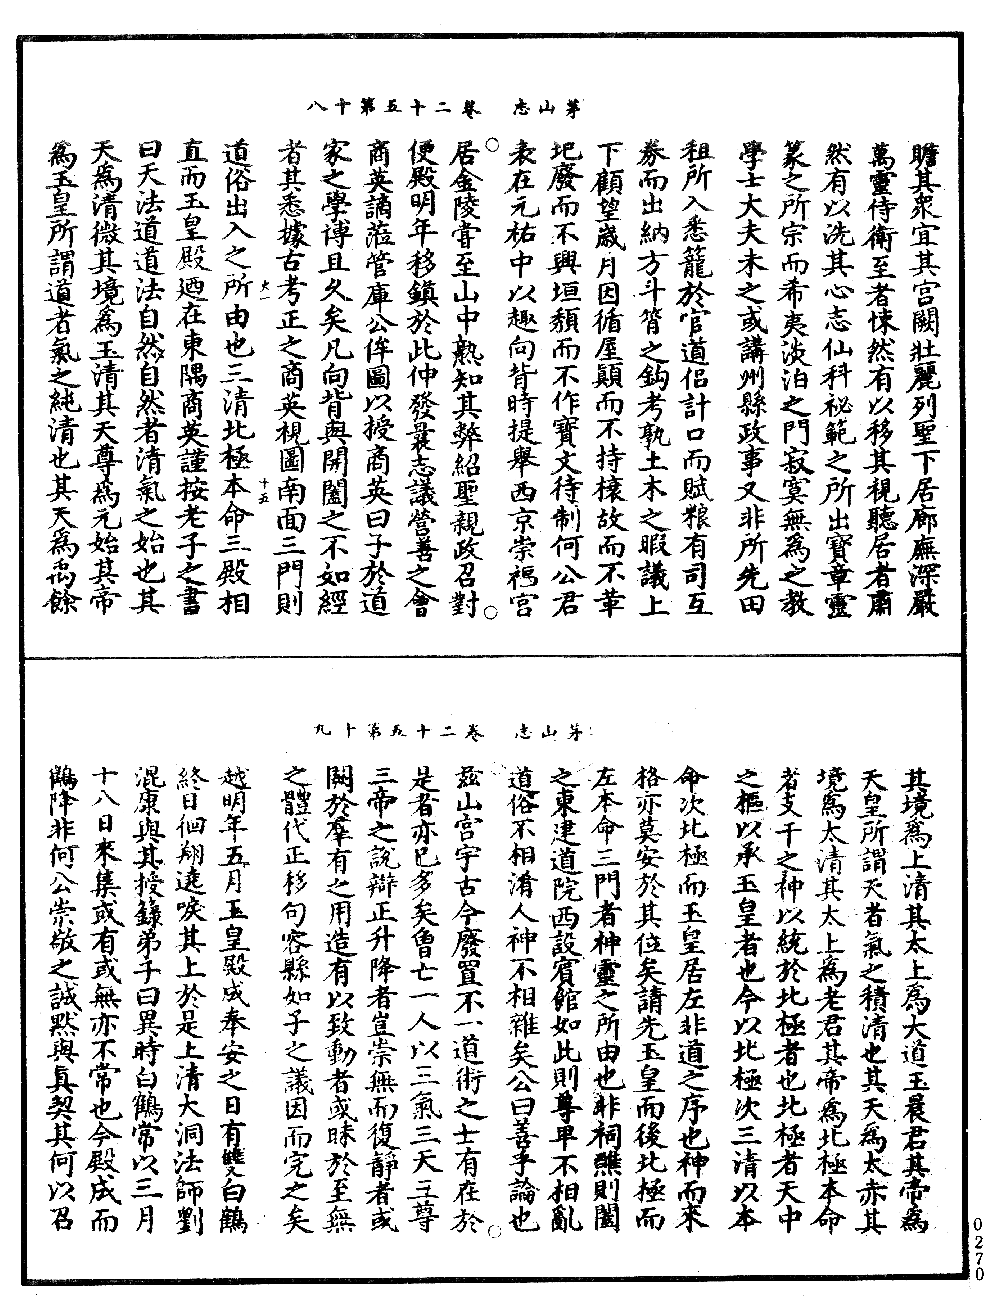 茅山志　卷二十五第十八
瞻其衆宜其宮闕壯麗列聖下居廊廡深嚴
萬靈侍衛至者悚然有以移其視聽居者肅
然有以洗其心志仙科祕範之所出寶章靈
篆之所宗而希夷淡泊之門寂寞無為之教
學士大夫未之或講州縣政事又非所先田
租所入悉籠於官道侶計口而賦粮有司互
券而出納方斗筲之鈎考孰土木之暇議上
下顧望歲月因循屋顛而不持榱故而不葺
圯廢而不興垣頹而不作寶文待制何公君
表在元祐中以趣向背時提舉西京崇福宮
居金陵嘗至山中熟知其弊紹聖親政召對
便殿明年移鎮於此仲發曩志議營善之會
商英謫蒞管庫公俾圖以授商英曰子於道
家之學博且久矣凡向背與開闔之不如經
者其悉據古考正之商英視圖南面三門則
道俗出入之所由也三清北極本命三殿相
直而玉皇殿廼在東隅商英謹按老子之書
曰天法道道法自然自然者清氣之始也其
天為清微其境為玉清其天尊為元始其帝
為玉皇所謂道者氣之純清也其天為禹餘
茅山志　卷二十五第十九
其境為上清其太上為大道玉晨君其帝為
天皇所謂天者氣之積清也其天為太赤其
境為太清其太上為老君其帝為北極本命
者支干之神以統於北極者也北極者天中
之樞以承玉皇者也今以北極次三清以本
命次北極而玉皇居左非道之序也神而來
格亦莫安於其位矣請先玉皇而後北極而
左本命三門者神靈之所由也非祠醮則闔
之東建道院西設賓館如此則尊卑不相亂
道俗不相淆人神不相雜矣公曰善乎論也
茲山宮宇古今廢置不一道術之士有在於
是者亦已多矣魯亡一人以三氣三天三尊
三帝之說辯正升降者豈崇無而復靜者或
闕於羣有之用造有以致動者或昧於至無
之體代正移句容縣如子之議因而完之矣
越明年五月玉皇殿成奉安之日有雙白鶴
終日徊翔遠唳其上於是上清大洞法師劉
混康與其授籙弟子曰異時白鶴常以三月
十八日來集或有或無亦不常也今殿成而
鶴降非何公崇敬之誠黙與真契其何以召
0270